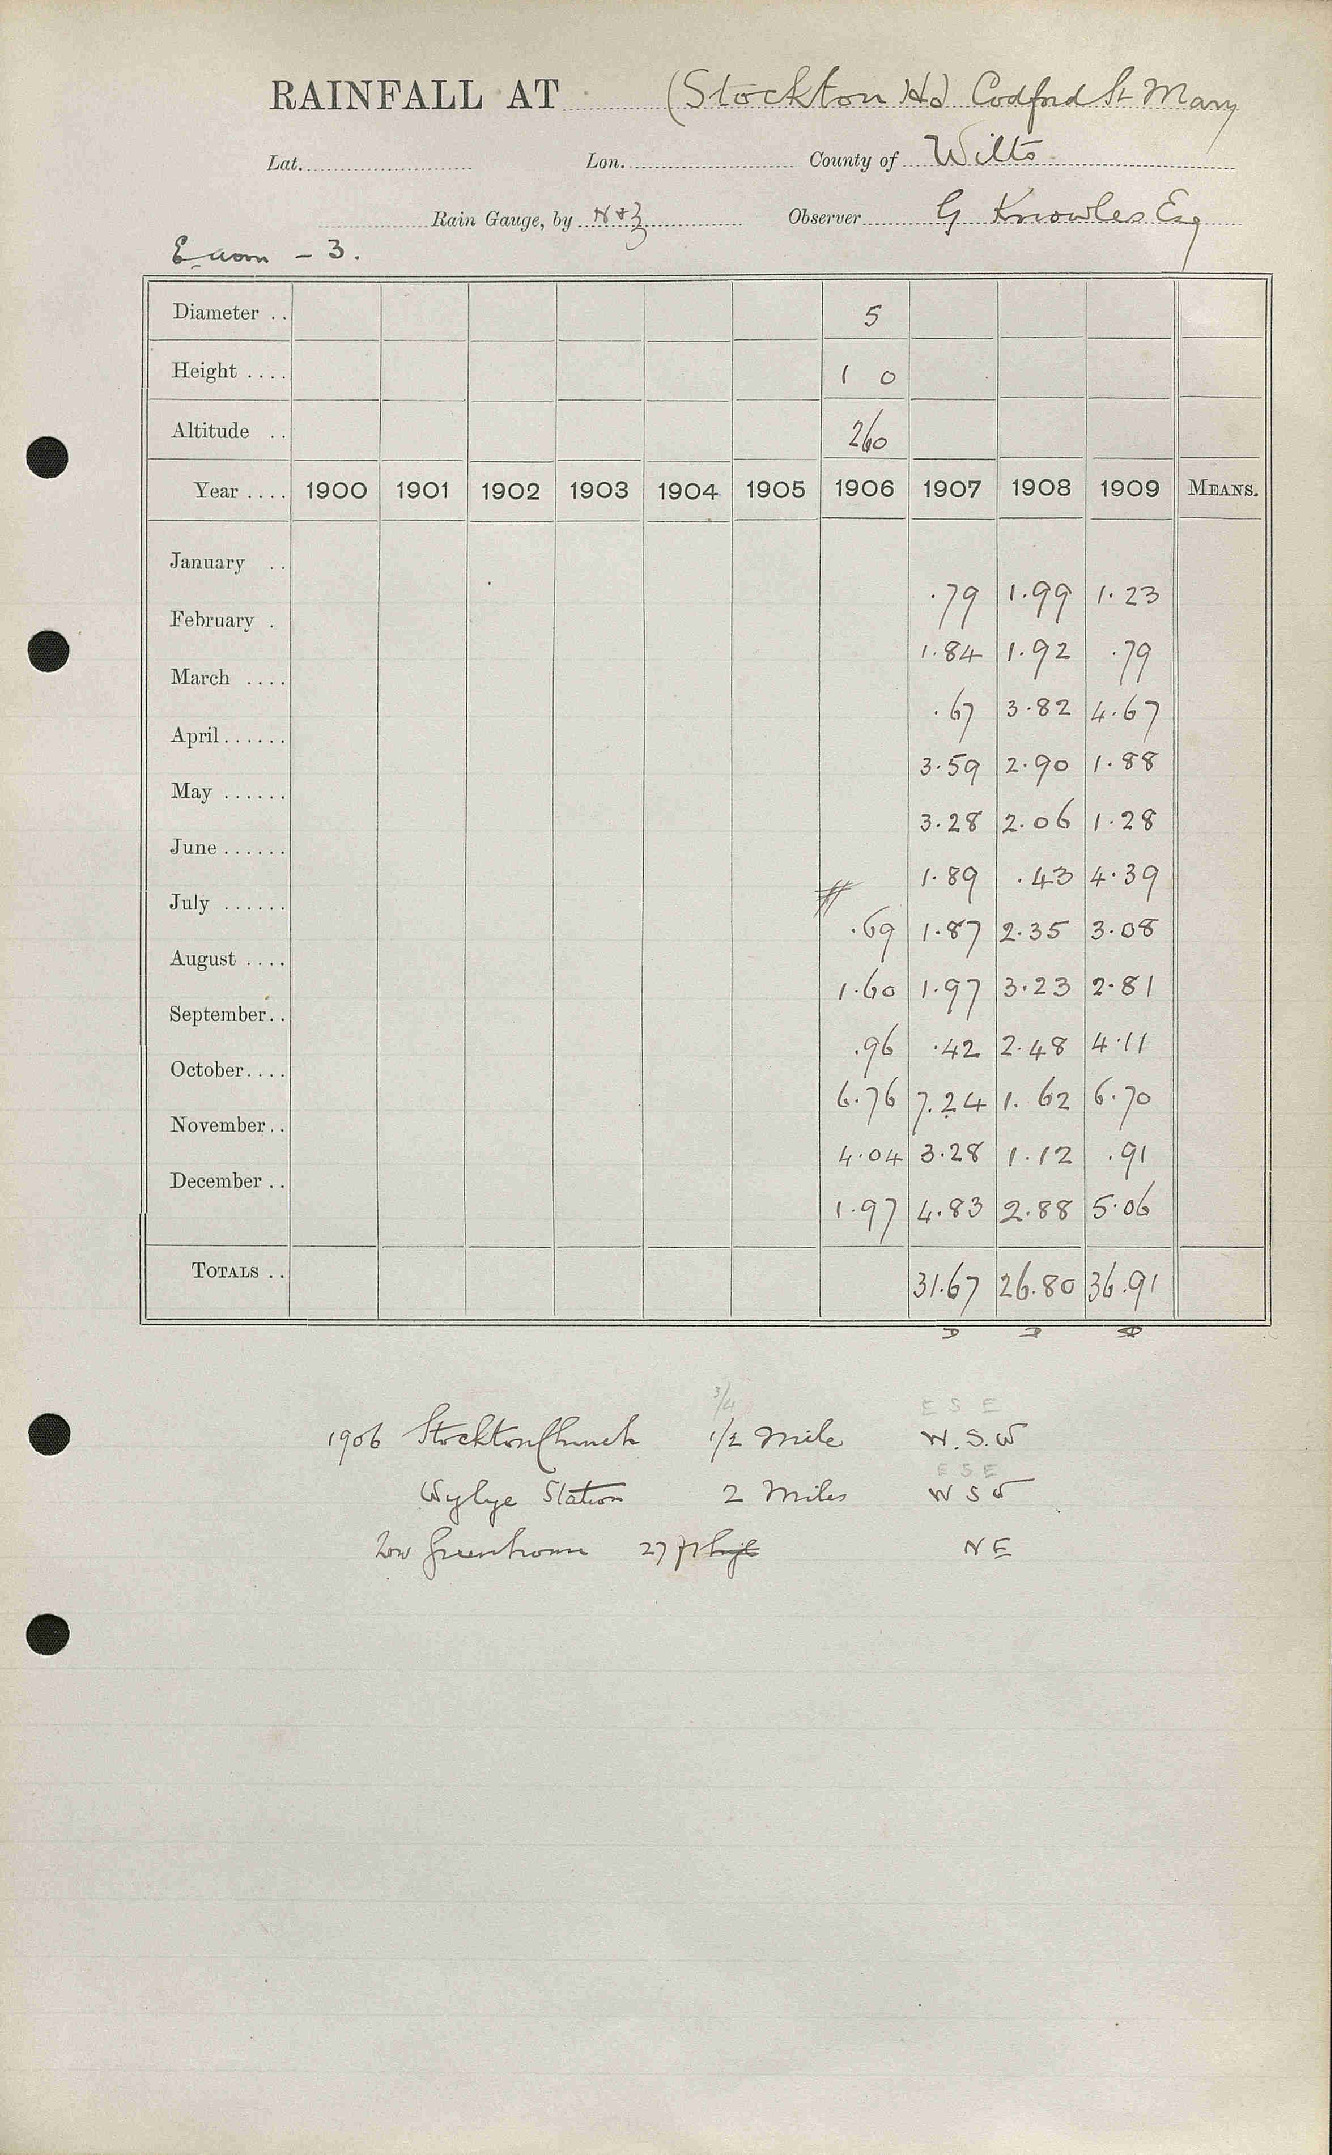 RAINFALL AT (Stockton Ho) Codford St Mary
Lat. Lon. County of Wilts.
Rain Gauge, by N & Z Observer G Knowles Esq
Exam – 3.
Diameter .. 5
Height .... 1 0
Altitude .. 260
Year .... 1900 1901 1902 1903 1904 1905 1906 1907 1908 1909 MEANS.
January .. .79 1.99 1.23
February . 1.84 1.92 .79
March .... .67 3.82 4.67
April ...... 3.59 2.90 1.88
May ...... 3.28 2.06 1.28
June ...... 1.89 .43 4.39
July ...... .69 1.87 2.35 3.08
August .... 1.60 1.97 3.23 2.81
September.. .96 .42 2.48 4.11
October.... 6.76 7.24 1.62 6.70
November.. 4.04 3.28 1.12 .91
December .. 1.97 4.83 2.88 5.06
TOTALS .. 31.67 26.80 36.91
3/4 E S E
1906 Stockton Church 1/2 Mile W.S.W
E S E
Wylye Station 2 Miles W S W
Low Greenhouse 27 ft N E